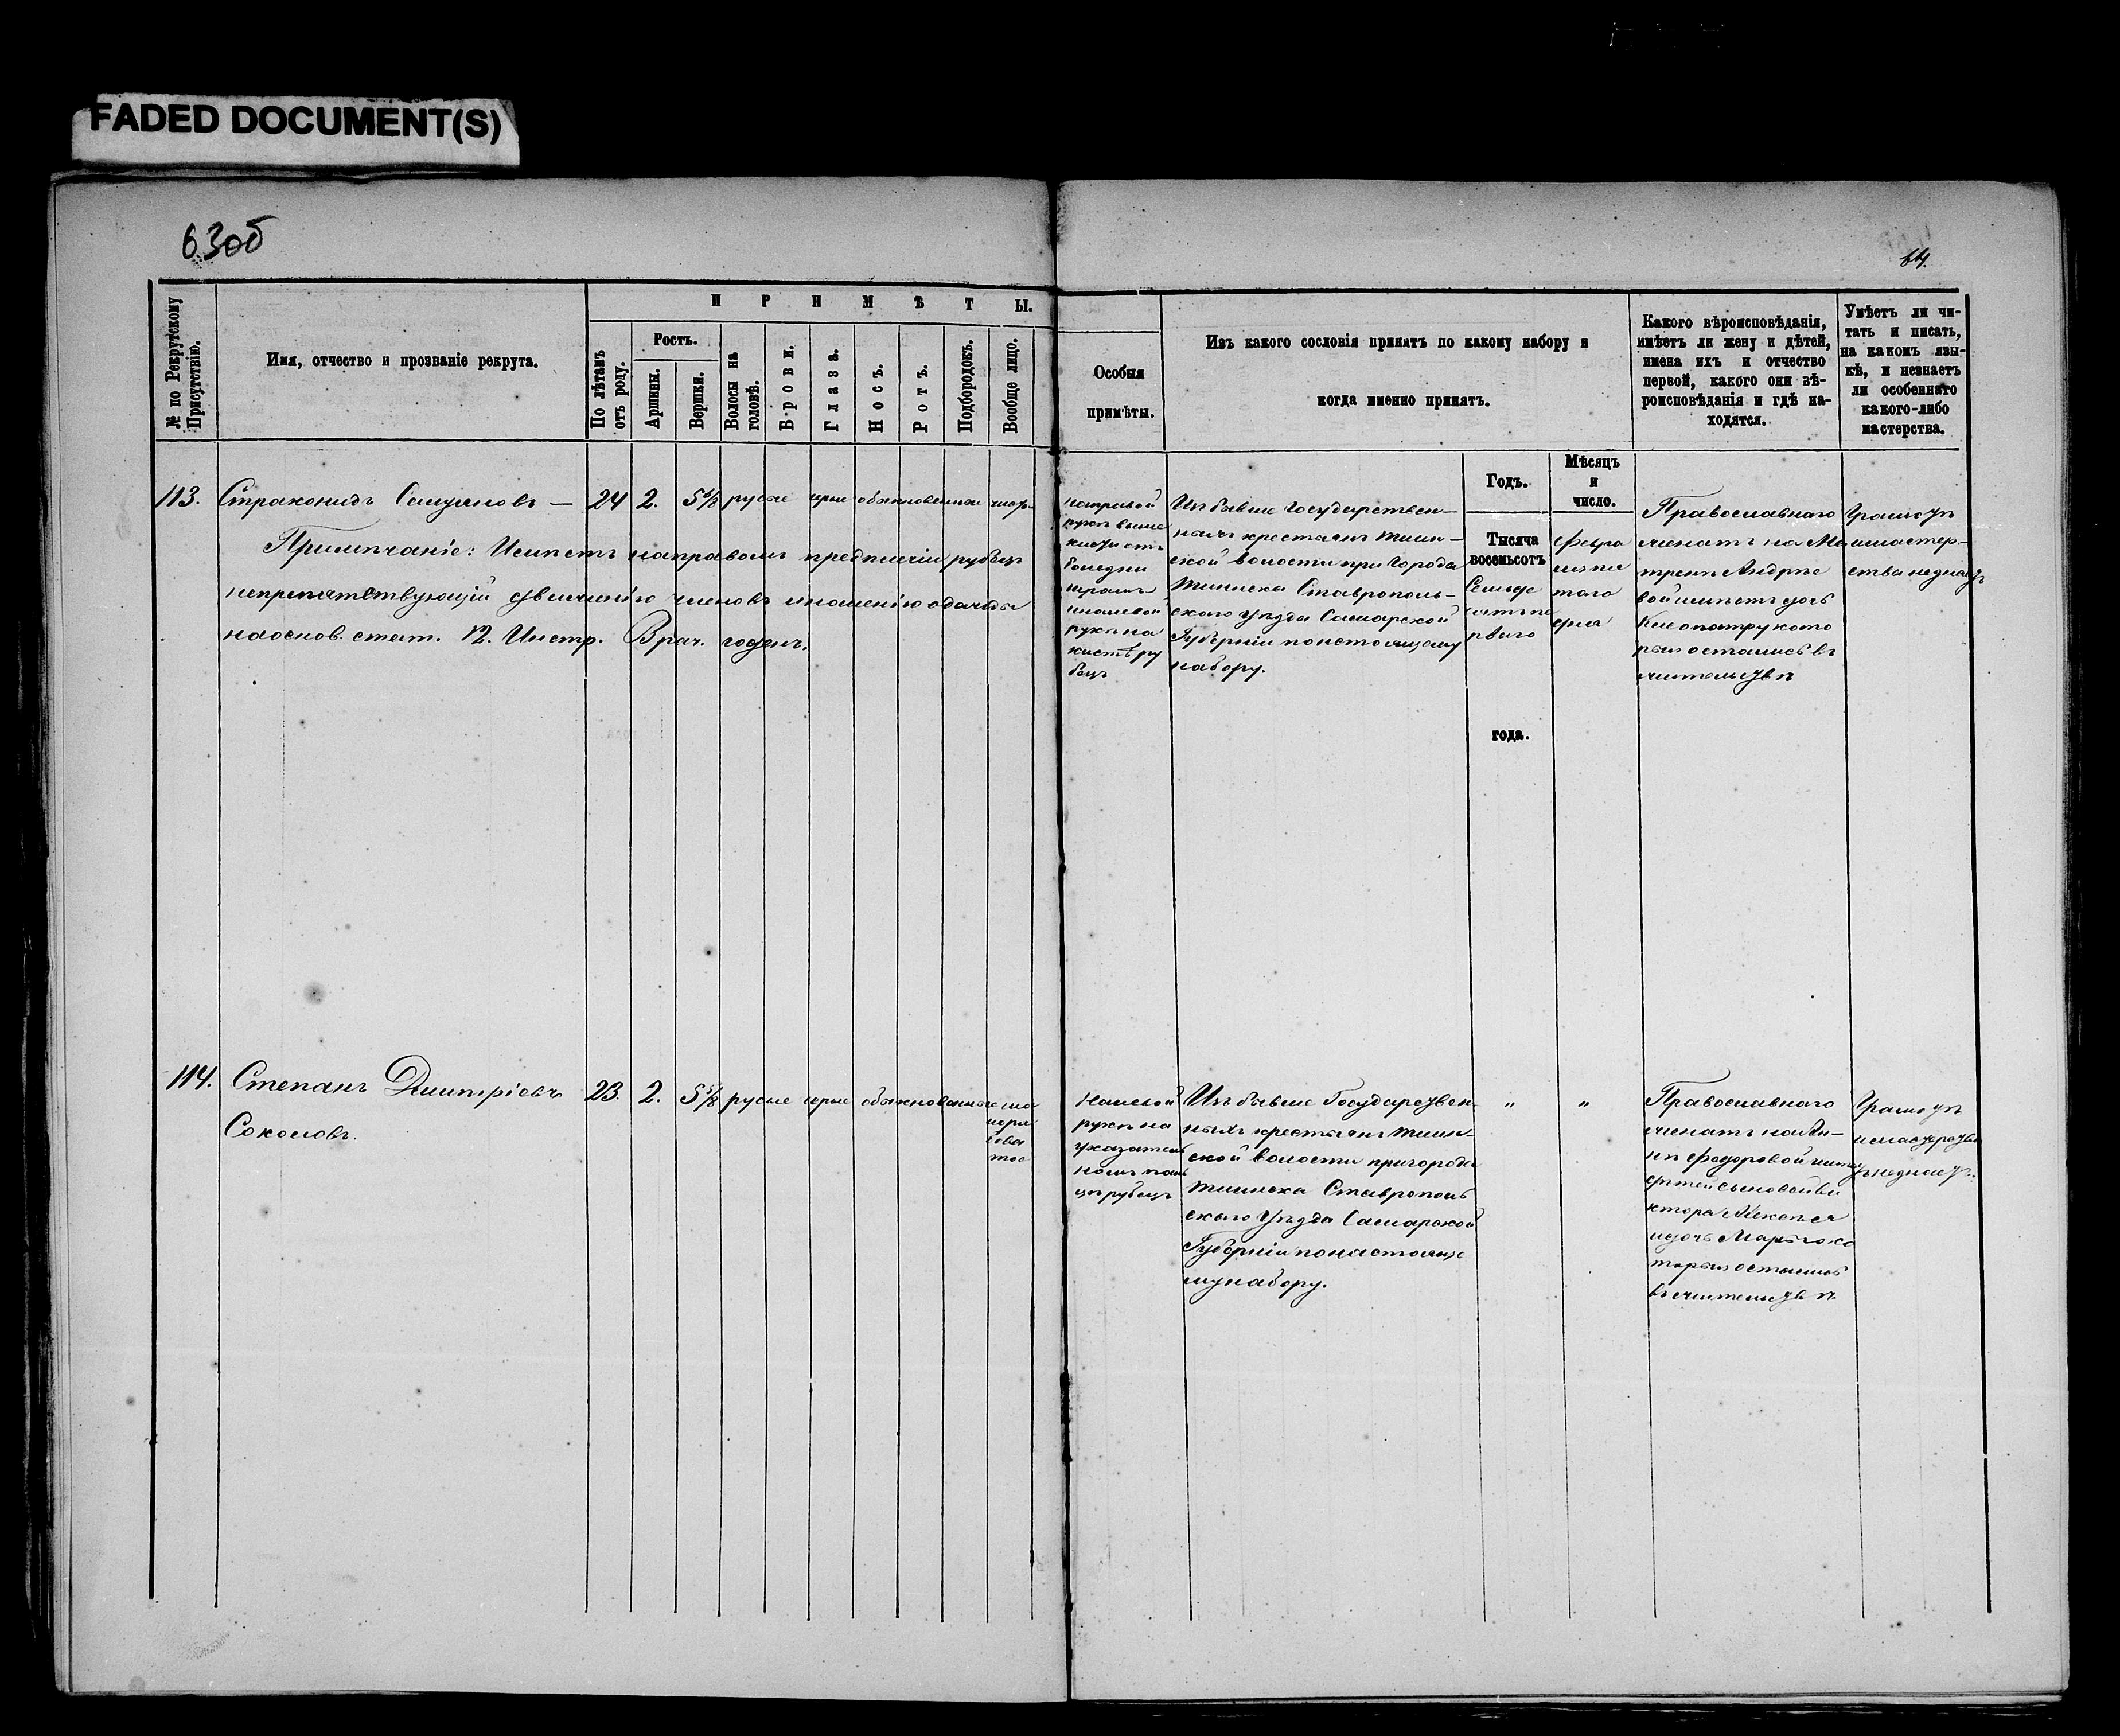 FADED DOCUMENT(S)
63об
64.
№ по Рекрутскому Присутствію.
Имя, отчество и прозваніе рекрута.
ПРИМѢТЫ.
По лѣтамъ отъ роду.
Ростъ.
Аршины.
Вершки.
Волосы на головѣ.
Брови.
Глаза.
Носъ.
Ротъ.
Подбородокъ.
Вообще лицо.
Особыя
примѣты.
Изъ какого сословія принятъ по какому набору и
когда именно принятъ.
Какого вѣроисповѣданія,
имѣетъ ли жену и дѣтей,
имена ихъ и отчество
первой, какого они вѣ-
роисповѣданія и гдѣ на-
ходятся.
Умѣетъ ли чи-
тать и писать,
на какомъ язы-
кѣ, и незнаетъ
ли особеннаго
какого-либо
мастерства.
Годъ.
Мѣсяцъ
и
число.
113. Страхонидъ — 24 2. 5 русые сѣрые обыкновенные чист.
Примѣчаніе: Имѣетъ направомъ предплечіи рубецъ
непрепятствующій движенію членовъ иношенію одежды
наоснов. стат. 12. Инстр. Врач. годенъ.
направой
рукѣ выше
кисти отъ
болѣзни
шрамъ
иналевой
рукѣ на
кистѣ ру
бецъ
Изъ бывше Государствен-
ныхъ крестьянъ Тиин-
ской волости при Города
Тиинска Ставрополь-
скаго Уѣзда Самарской
Губерніи понастоящему
набору.
Тысяча
восемьсотъ
Семьде
сятъ пе
рваго
года.
Февра
ля пя
таго
дня
Православнаго
женатъ на Ма
тренѣ Андрѣе
вой имѣетъ дочь
Клеопатру кото
рыя остались въ
жительствѣ
Грамотѣ
имастер-
ства незнаетъ
114. Степанъ Дмитріевъ 23. 2. 5 5/8 русые сѣрые обыкновенные
Соколовъ.
Налевой
рукѣ на
указатель
номъ паль
цѣ рубецъ
Изъ бывше Государствен-
ныхъ крестьянъ Тиин-
ской волости пригорода
Тиинска Ставрополь
скаго Уѣзда Самарской
Губерніи понастояще
му набору.
" "
Православнаго
женатъ на Ан-
нѣ Федоровой имѣе
дѣтей сыновей Ви
ктора Алексѣя
идочь Марью ко
торыя остались
въ жительствѣ
Грамотѣ
имастерства
незнаетъ.